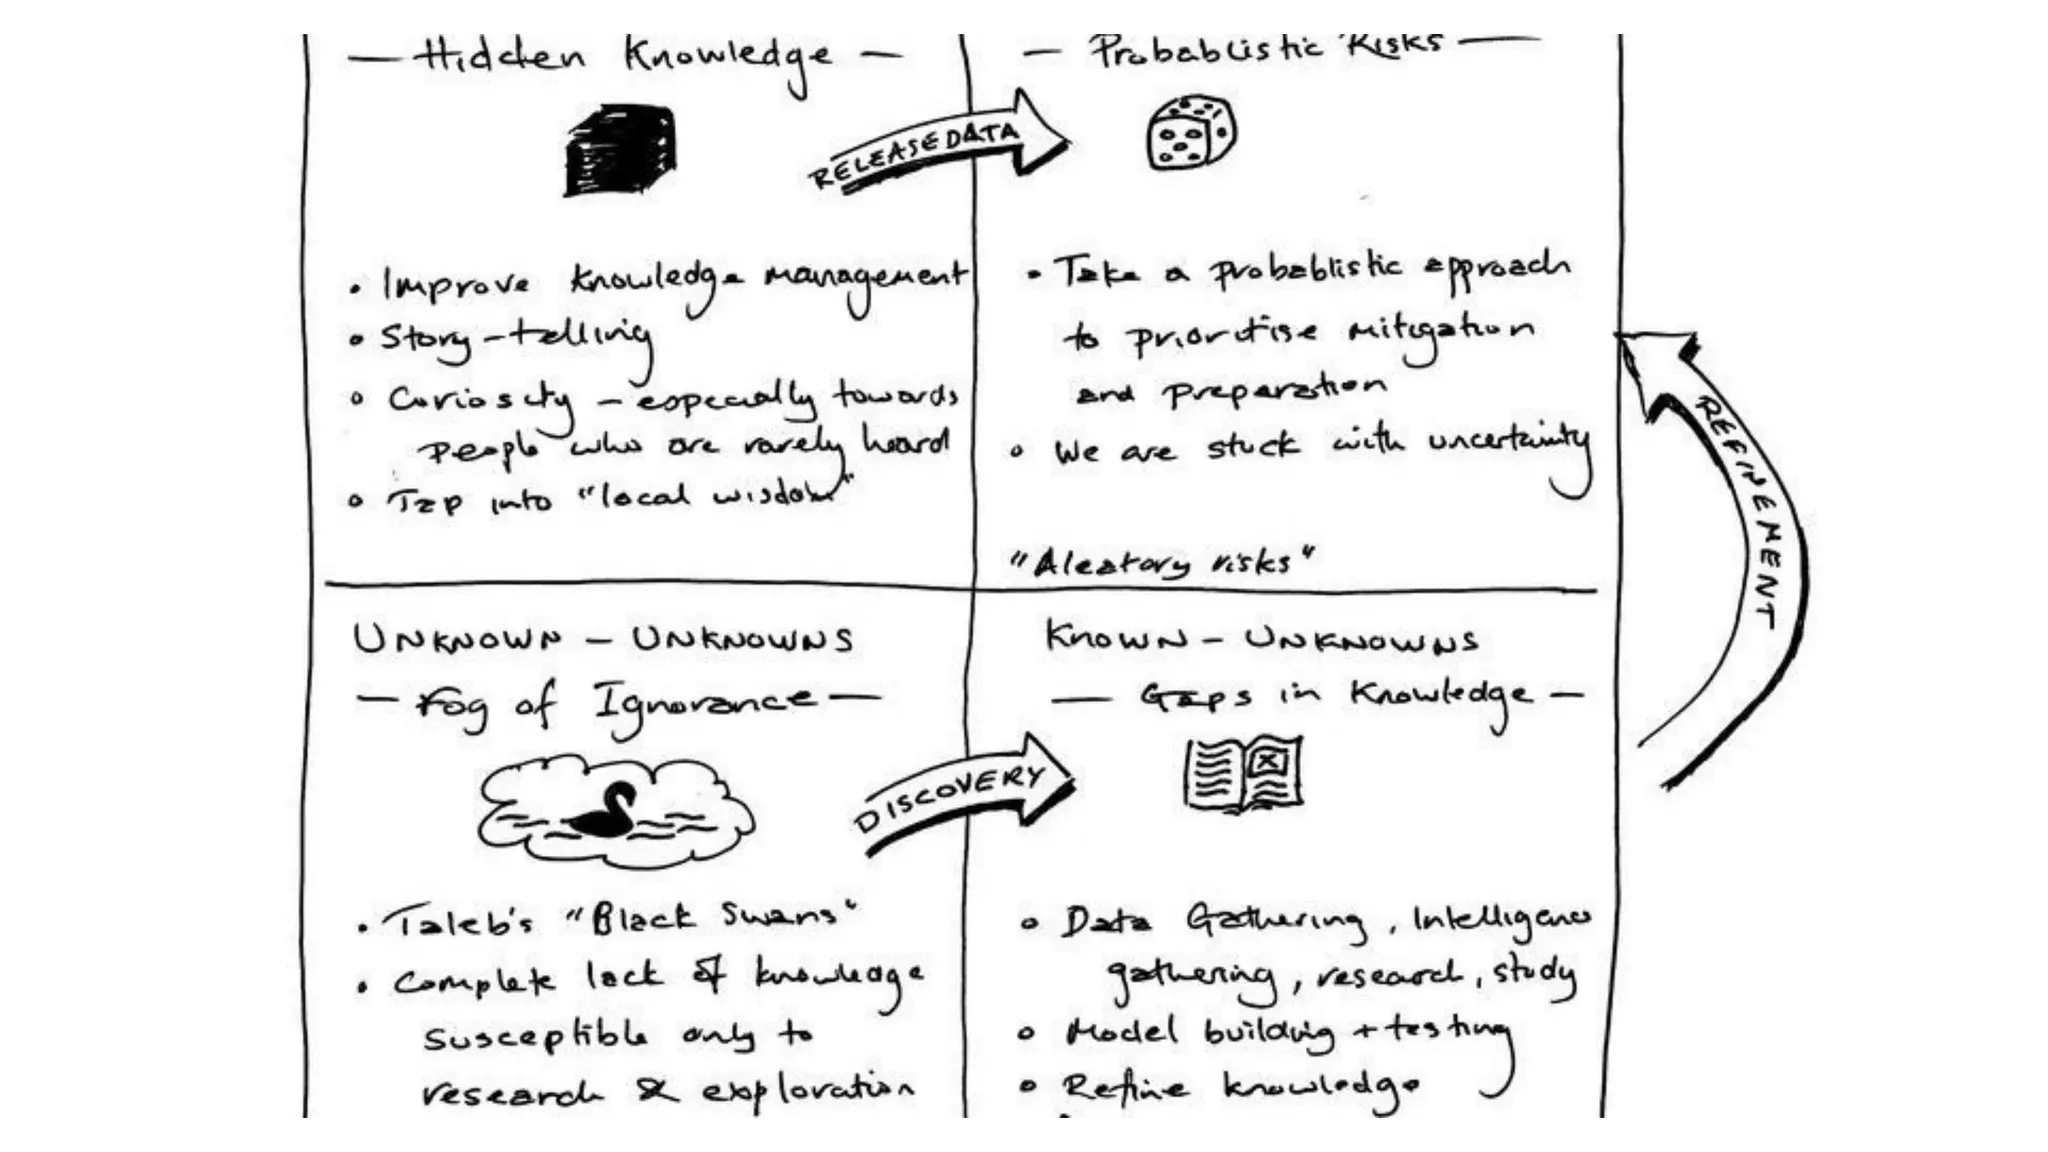 — Hidden Knowledge —
RELEASE DATA
• Improve knowledge management
• Story-telling
• Curiosity - especially towards
people who are rarely heard
• Tap into "local wisdom"
— Probablistic Risks —
• Take a probablistic approach
to prioritise mitigation
and preparation
• We are stuck with uncertainty
"Aleatory risks"
REFINEMENT
UNKNOWN - UNKNOWNS
— Fog of Ignorance —
DISCOVERY
• Taleb's "Black Swans"
• Complete lack of knowledge
susceptible only to
research & exploration
KNOWN - UNKNOWNS
— Gaps in Knowledge —
• Data Gathering, Intelligence
gathering, research, study
• Model building + testing
• Refine knowledge